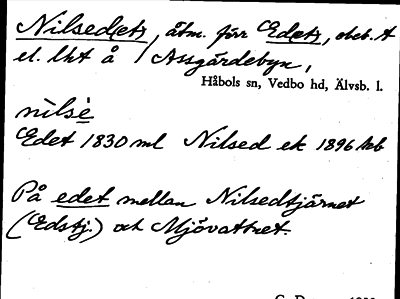 Nilsed(et), åtm. förr Ed(et), obeb. t
el. lht å Assgårdebyn,
Håbols sn, Vedbo hd, Älvsb. l.
nilsè
Edet 1830 ml Nilsed ek 1896 kb
På edet mellan Nilsedtjärnet
(Edstj.) och Mjövattnet.